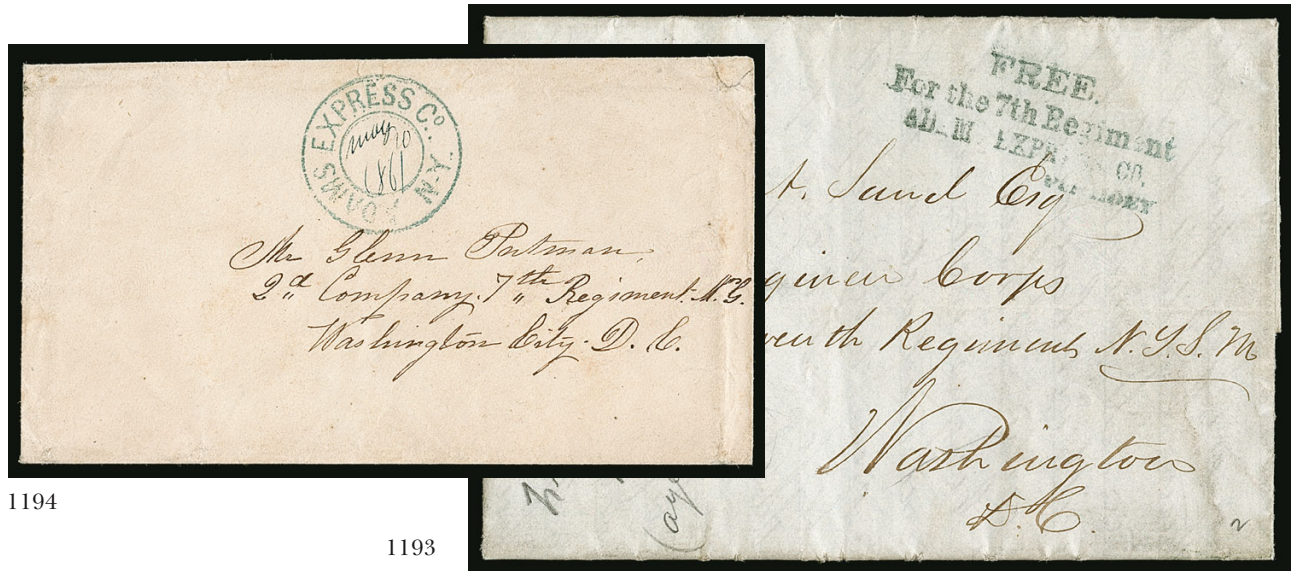 ADAMS EXPRESS Co. N-Y.
May 10
1861
Mr Glenn Putman,
2d Company. 7th Regiment. N.G.
Washington City. D. C.
1194
FREE.
For the 7th Regiment
EXPR CO.
A. Esq
Corps
Regiment N.Y.S.M
Washington
D.C.
2
1193